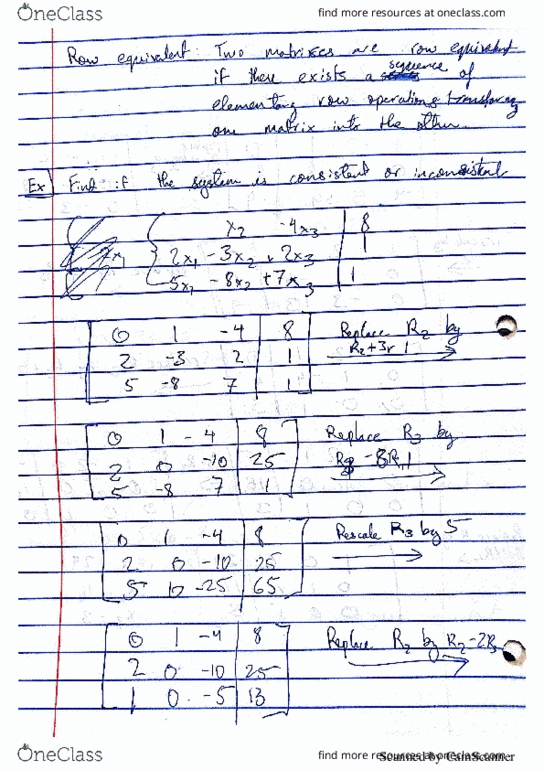 OneClass
find more resources at oneclass.com
Row equivalent: Two matrixes are row equivalent
if there exists a sequence of
elementary row operations transforming
one matrix into the other.
Ex Find if the system is consistent or inconsistent
x2 -4x3 | 8
2x1 2x1 - 3x2 + 2x3 | 1
5x1 - 8x2 + 7x3 | 1
0 1 -4 | 8 Replace R2 by
2 -3 2 | 1 R2+3r1
5 -8 7 | 1
0 1 -4 | 8 Replace R3 by
2 0 -10 | 25 -8R1
5 -8 7 | 1
0 1 -4 | 8 Rescale R3 by 5
2 0 -10 | 25
5 10 -25 | 65
0 1 -4 | 8 Replace R2 by R2-2R3
2 0 -10 | 25
1 0 -5 | 13
OneClass
find more resources at oneclass.com
Scanned by CamScanner